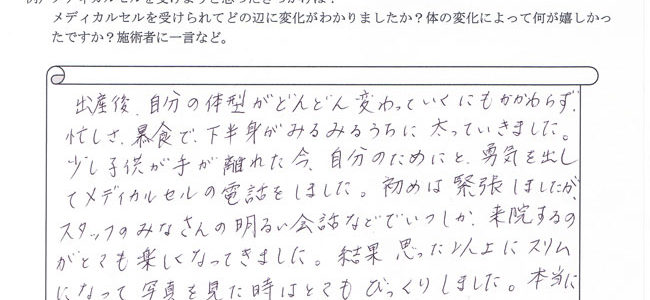 例）メディカルセルを受けようと思ったきっかけは？
メディカルセルを受けられてどの辺に変化がわかりましたか？体の変化によって何が嬉しかっ
たですか？施術者に一言など。
出産後、自分の体型がどんどん変わっていくにもかかわらず、
忙しさ、暴食で、下半身がみるみるうちに太っていきました。
少し子供が手が離れた今、自分のためにと、勇気を出し
てメディカルセルの電話をしました。初めは緊張しましたが、
スタッフのみなさんの明るい会話などでいつしか、来院するの
がとても楽しくなってきました。結果 思った以上にスリム
になって 写真を見た時はとてもびっくりしました。本当に